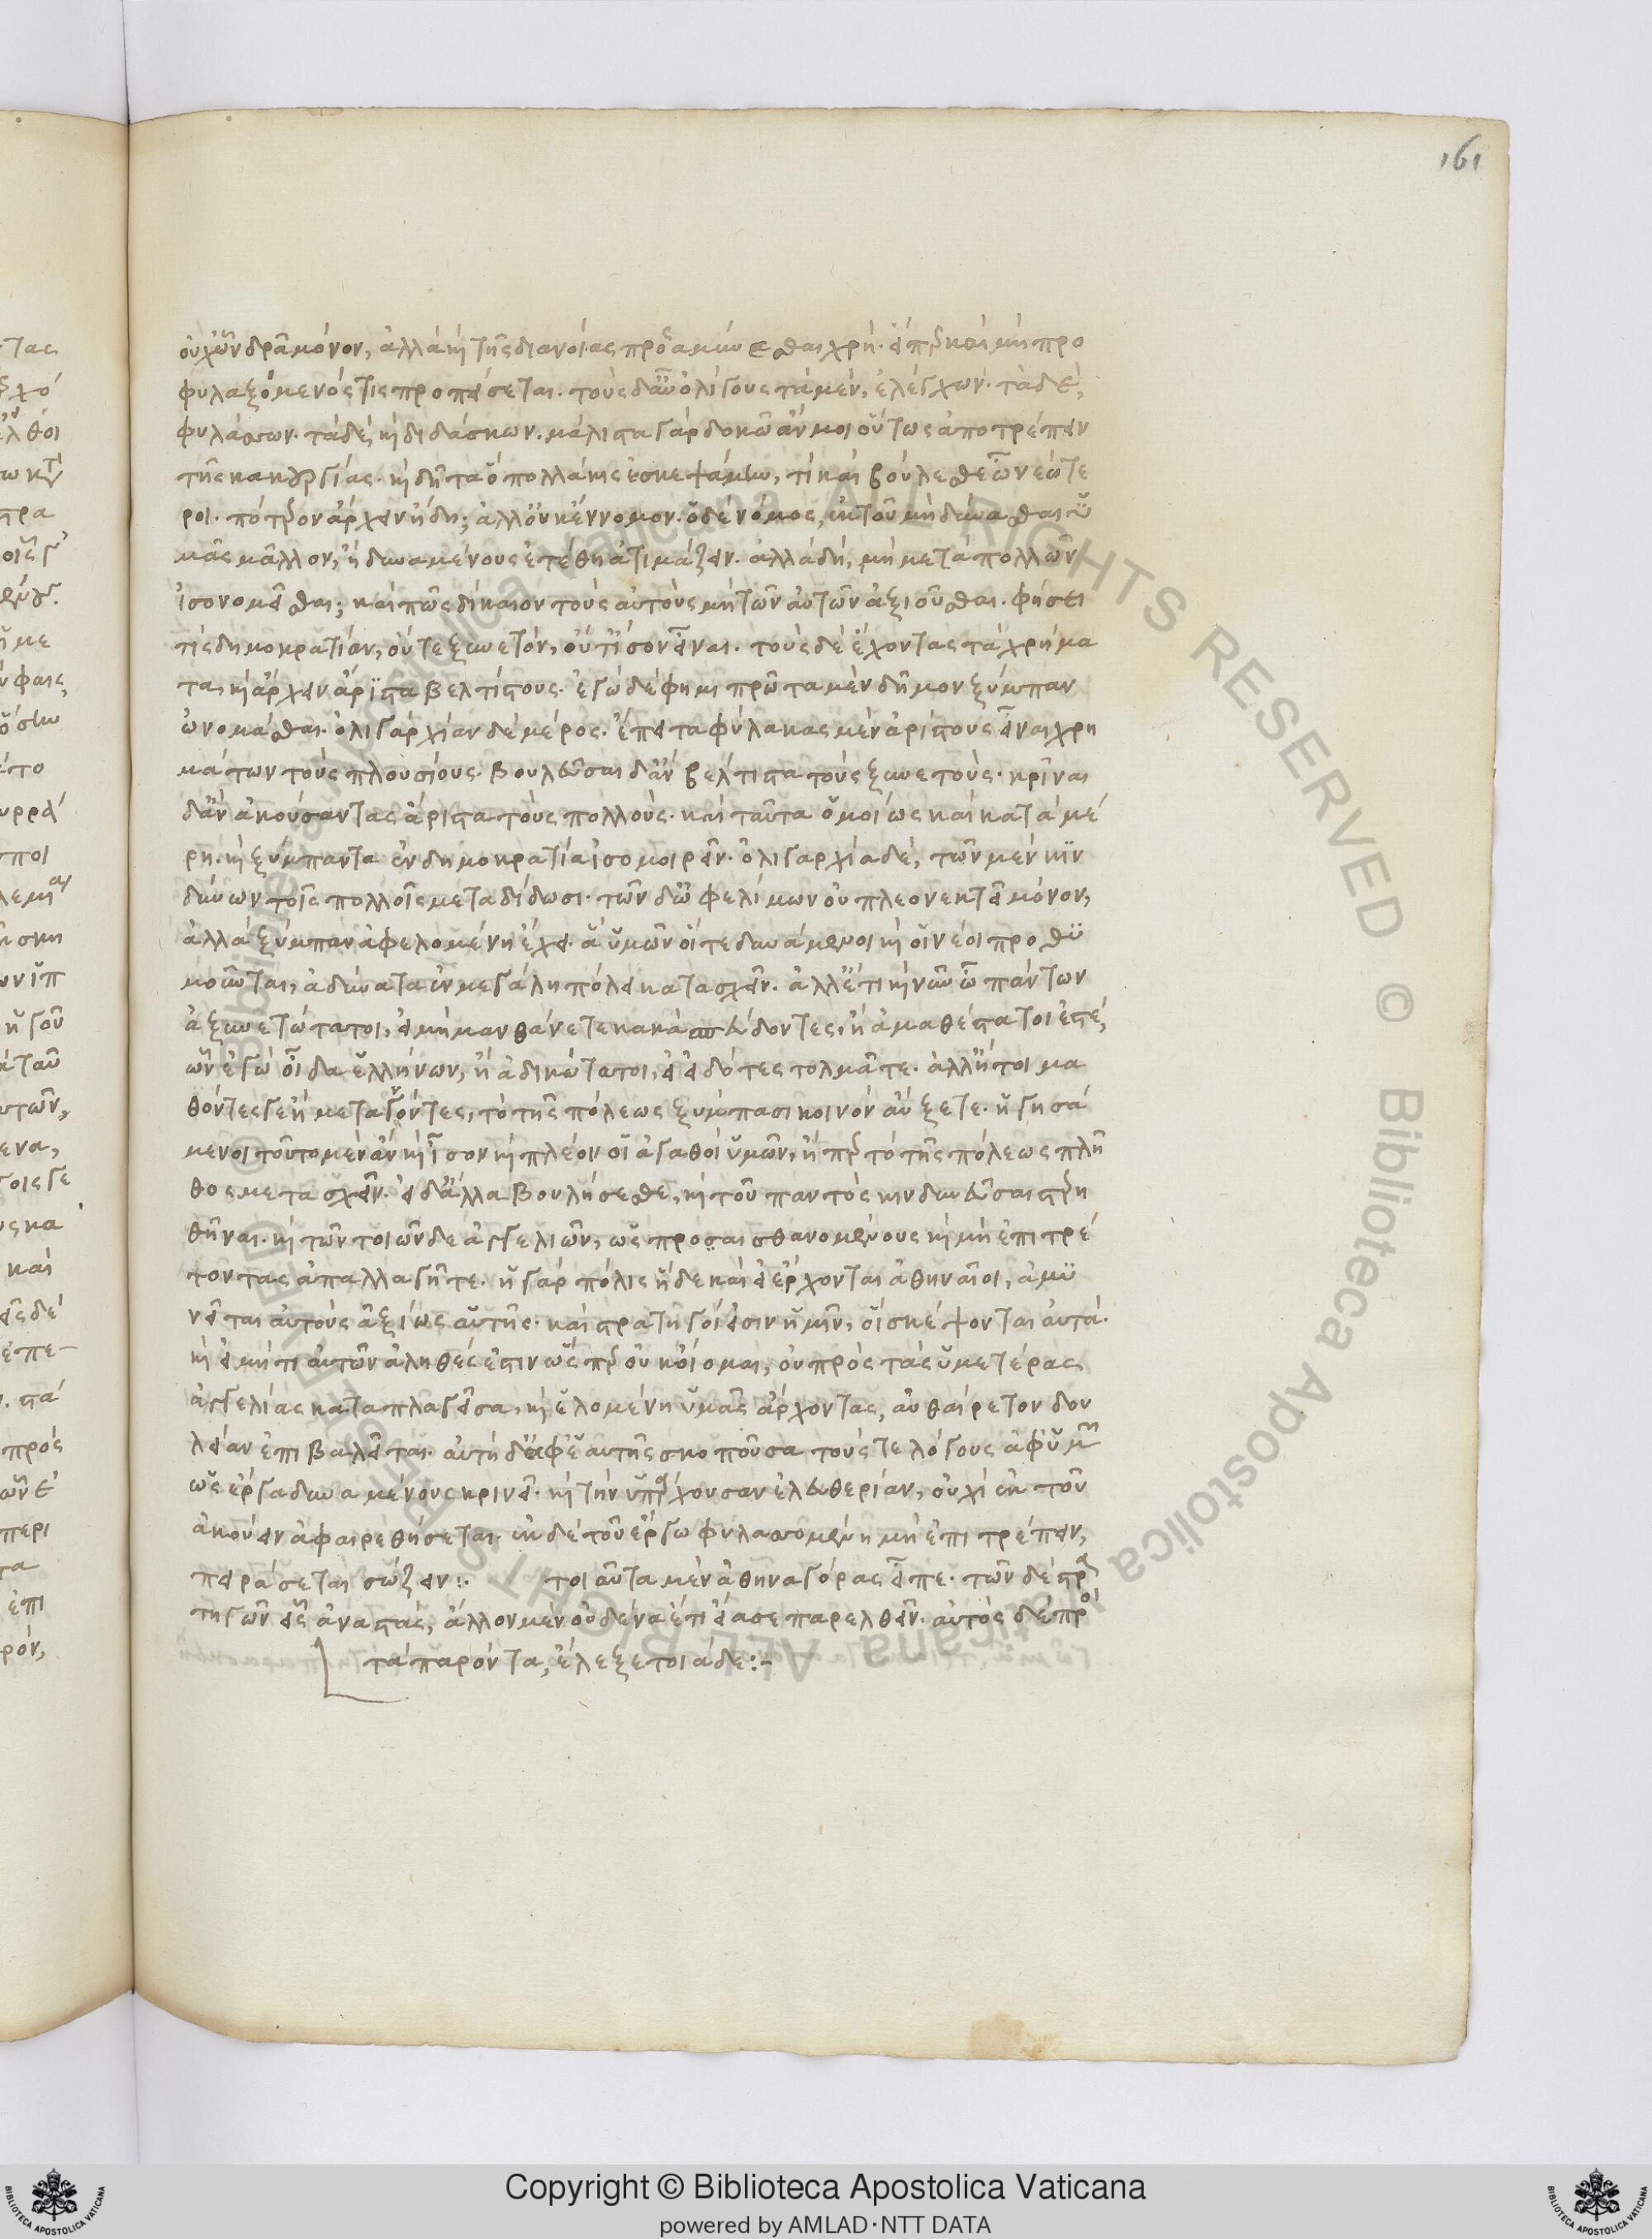 161
οὐχ ὧν δρᾷ μόνον, ἀλλὰ καὶ τῆς διανοίας προαμύνεσθαι χρή. εἴπερ καὶ μὴ προ
φυλαξόμενός τις προπείσεται. τοὺς δ' αὖ ὀλίγους τὰ μὲν, ἐλέγχων. τὰ δὲ,
φυλάσσων. τὰ δὲ, καὶ διδάσκων. μάλιστα γὰρ δοκῶ ἄν μοι οὕτως ἀποτρέπειν
τῆς κακουργίας. καὶ δῆτα ὃ πολλάκις ἐσκεψάμην, τί καὶ βούλεσθε ὦ νεώτε
ροι. πότερον ἄρχειν ἤδη; ἀλλ' οὐκ ἔννομον. ὁ δὲ νόμος, ἐκ τοῦ μὴ δύνασθαι ὑ
μᾶς μᾶλλον, ἢ δυναμένους ἐτέθη ἀτιμάζειν. ἀλλὰ δὴ, μὴ μετὰ πολλῶν
ἰσονομεῖσθαι; καὶ πῶς δίκαιον τοὺς αὐτοὺς μὴ τῶν αὐτῶν ἀξιοῦσθαι. φήσει
τις δημοκρατίαν, οὔτε ξυνετὸν, οὔτ' ἴσον εἶναι. τοὺς δὲ ἔχοντας τὰ χρήμα
τα, καὶ ἄρχειν ἄριστα βελτίστους. ἐγὼ δέ φημι πρῶτα μὲν δῆμον ξύμπαν
ὠνομάσθαι. ὀλιγαρχίαν δὲ μέρος. ἔπειτα φύλακας μὲν ἀρίστους εἶναι χρη
μάτων τοὺς πλουσίους. βουλεῦσαι δ' ἂν βέλτιστα τοὺς ξυνετούς. κρῖναι
δ' ἂν ἀκούσαντας ἄριστα τοὺς πολλούς. καὶ ταῦτα ὁμοίως καὶ κατὰ μέ
ρη. καὶ ξύμπαντα ἐν δημοκρατία ἰσομοιρεῖν. ὀλιγαρχία δὲ, τῶν μὲν κιν
δύνων τοῖς πολλοῖς μεταδίδωσι. τῶν δ' ὠφελίμων οὐ πλεονεκτεῖ μόνον,
ἀλλὰ ξύμπαν ἀφελομένη ἔχει. ἃ ὑμῶν οἵ τε δυνάμενοι καὶ οἱ νέοι προθυ
μοῦνται, ἀδύνατα ἐν μεγάλη πόλει κατασχεῖν. ἀλλ' ἔτι καὶ νῦν ὦ πάντων
ἀξυνετώτατοι, εἰ μὴ μανθάνετε κακὰ σπεύδοντες, ἢ ἀμαθέστατοί ἐστέ,
ὧν ἐγὼ οἶδα ἑλλήνων, ἢ ἀδικώτατοι, εἰ εἰδότες τολμᾶτε. ἀλλ' ἤτοι μα
θόντες γε ἢ μεταγνόντες, τὸ τῆς πόλεως ξύμπασι κοινὸν αὔξετε. ἡγησά
μενοι τοῦτο μὲν ἂν καὶ ἴσον καὶ πλέον οἱ ἀγαθοὶ ὑμῶν, ἤπερ τὸ τῆς πόλεως πλῆ
θος μετασχεῖν. εἰ δ' ἄλλα βουλήσεσθε, καὶ τοῦ παντὸς κινδυνεῦσαι στερη
θῆναι. καὶ τῶν τοιῶνδε ἀγγελιῶν, ὡς προσαισθανομένους καὶ μὴ ἐπιτρέ
ψοντας ἀπαλλάγητε. ἡ γὰρ πόλις ἥδε καὶ εἰ ἔρχονται ἀθηναῖοι, ἀμυ
νεῖται αὐτοὺς ἀξίως αὑτῆς. καὶ στρατηγοί εἰσιν ἡμῖν, οἳ σκέψονται αὐτά.
καὶ εἰ μή τι αὐτῶν ἀληθές ἐστιν ὥσπερ οὐκ οἴομαι, οὐ πρὸς τὰς ὑμετέρας
ἀγγελίας καταπλαγεῖσα, καὶ ἑλομένη ὑμᾶς ἄρχοντας, αὐθαίρετον δου
λείαν ἐπιβαλεῖται. αὐτὴ δ' ἐφ' ἑαυτῆς σκοποῦσα τούς τε λόγους ἀφ' ὑμῶν
ὡς ἔργα δυναμένους κρινεῖ. καὶ τὴν ὑπάρχουσαν ἐλευθερίαν, οὐχὶ ἐκ τοῦ
ἀκούειν ἀφαιρεθήσεται. ἐκ δὲ τοῦ ἔργω φυλασσομένη μὴ ἐπιτρέπειν,
πειράσεται σώζειν:. τοιαῦτα μὲν ἀθηναγόρας εἶπε. τῶν δὲ στρα
τηγῶν εἷς ἀναστὰς, ἄλλον μὲν οὐδένα ἔτι εἴασε παρελθεῖν. αὐτὸς δὲ πρὸς
τὰ παρόντα, ἔλεξε τοιάδε:-
Copyright © Biblioteca Apostolica Vaticana
powered by AMLAD·NTT DATA